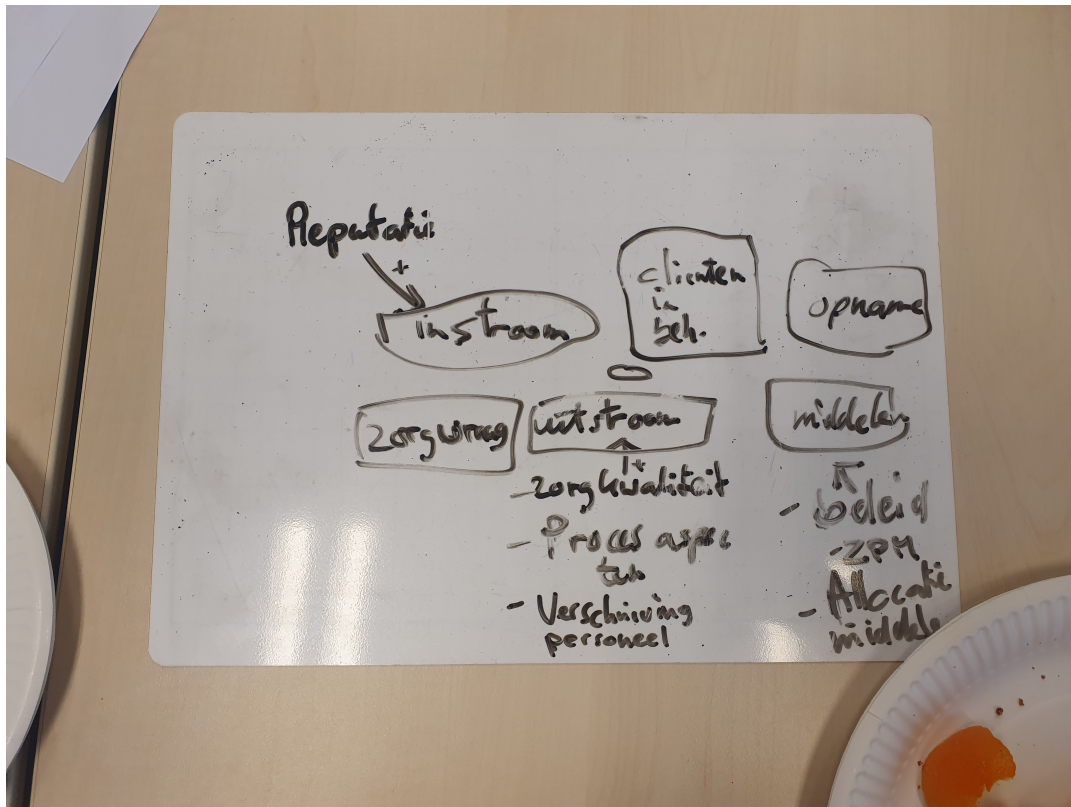 Reputatie
+
instroom
clienten
in
beh.
opname
zorgvraag
uitstroom
middelen
+
- zorgkwaliteit
- Proces aspec
ten
- Verschuiving
personeel
- beleid
- ZPM
- Allocatie
middele